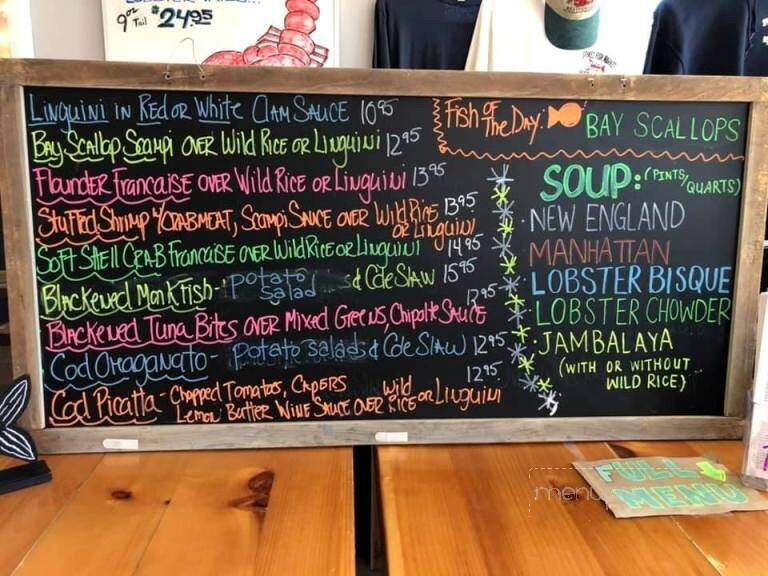 9oz Tail $24.95
Linguini in Red or White Clam Sauce 10.95
Bay Scallop Scampi over Wild Rice or Linguini 12.95
Flounder Francaise over Wild Rice or Linguini 13.95
Stuffed Shrimp w/ Crabmeat, Scampi Sauce over Wild Rice 13.95
or Linguini
Soft Shell Crab Francaise over Wild Rice or Linguini 14.95
Blackened Monkfish - potato salad & Cole Slaw 15.95
Blackened Tuna Bites over Mixed Greens, Chipolte Sauce 12.95
Cod Oraganato - potato salad & Cole Slaw 12.95
Cod Picatta - Chopped Tomatoes, Capers 12.95
Lemon Butter Wine Sauce over Wild Rice or Linguini
Fish of The Day: BAY SCALLOPS
SOUP: (PINTS/QUARTS)
NEW ENGLAND
MANHATTAN
LOBSTER BISQUE
LOBSTER CHOWDER
JAMBALAYA
(WITH OR WITHOUT
WILD RICE)
FULL
MENU
menu